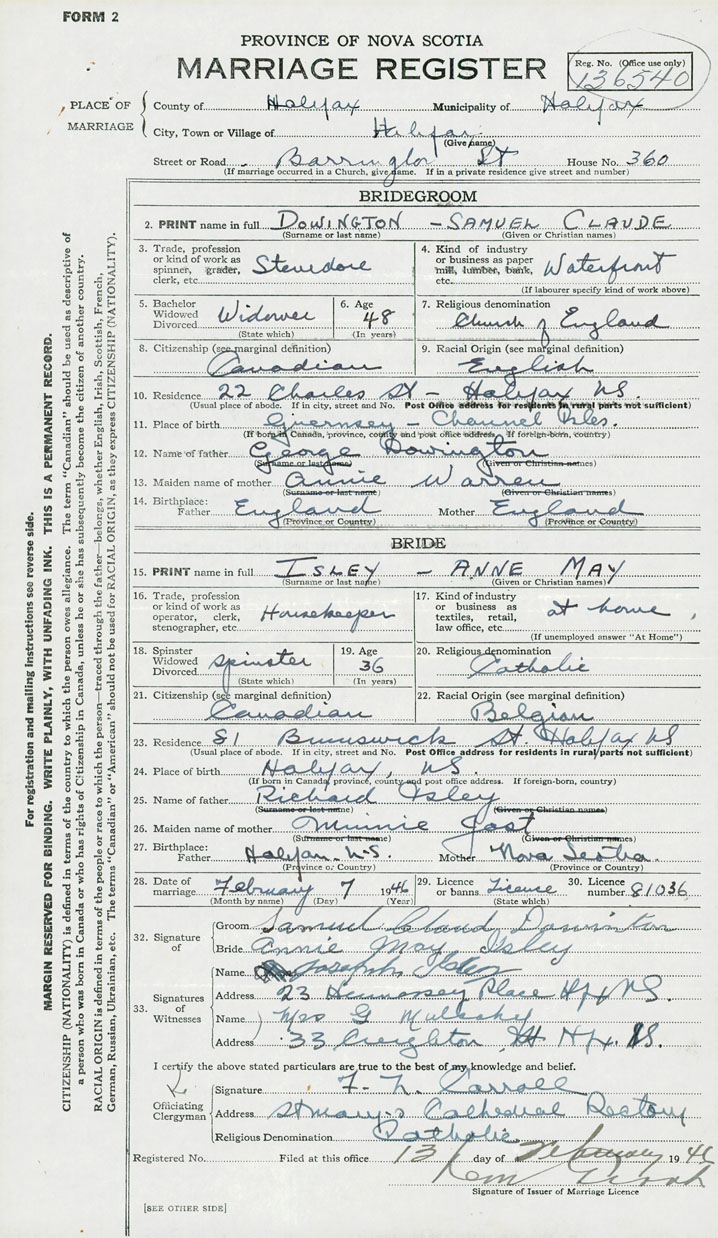 FORM 2
PROVINCE OF NOVA SCOTIA
MARRIAGE REGISTER
Reg. No. (Office use only)
136540
PLACE OF MARRIAGE
County of Halifax Municipality of Halifax
City, Town or Village of Halifax
(Give name)
Street or Road Barrington St House No. 360
(If marriage occurred in a Church, give name. If in a private residence give street and number)
BRIDEGROOM
2. PRINT name in full DOWINGTON - SAMUEL CLAUDE
(Surname or last name) (Given or Christian names)
3. Trade, profession or kind of work as spinner, grader, clerk, etc. Stevedore
4. Kind of industry or business as paper mill, lumber, bank, etc. Waterfront
(If labourer specify kind of work above)
5. Bachelor Widowed Divorced Widower
(State which)
6. Age 48
(In years)
7. Religious denomination
Church of England
8. Citizenship (see marginal definition)
Canadian
9. Racial Origin (see marginal definition)
English
10. Residence 22 Charles St - Halifax NS.
(Usual place of abode. If in city, street and No. Post Office address for residents in rural parts not sufficient)
11. Place of birth Guernsey - Channel Isles.
(If born in Canada, province, county and post office address. If foreign-born, country)
12. Name of father George Dowington
(Surname or last name) (Given or Christian names)
13. Maiden name of mother Annie Warren
(Surname or last name) (Given or Christian names)
14. Birthplace: Father England Mother England
(Province or Country) (Province or Country)
BRIDE
15. PRINT name in full ISLEY - ANNE MAY
(Surname or last name) (Given or Christian names)
16. Trade, profession or kind of work as operator, clerk, stenographer, etc. Housekeeper
17. Kind of industry or business as textiles, retail, law office, etc. at home
(If unemployed answer "At Home")
18. Spinster Widowed Divorced spinster
(State which)
19. Age 36
(In years)
20. Religious denomination
Catholic
21. Citizenship (see marginal definition)
Canadian
22. Racial Origin (see marginal definition)
Belgian
23. Residence 81 Brunswick St. Halifax NS
(Usual place of abode. If in city, street and No. Post Office address for residents in rural parts not sufficient)
24. Place of birth Halifax, NS.
(If born in Canada, province, county and post office address. If foreign-born, country)
25. Name of father Richard Isley
(Surname or last name) (Given or Christian names)
26. Maiden name of mother Minnie Jost
(Surname or last name) (Given or Christian names)
27. Birthplace: Father Halifax N.S. Mother Nova Scotia.
(Province or Country) (Province or Country)
28. Date of marriage February 7 1946
(Month by name) (Day) (Year)
29. Licence or banns Licence
(State which)
30. Licence number 81036
32. Signature of
Groom Samuel Claud
Bride Annie May Isley
33. Signatures of Witnesses
Name Joseph Isley
Address 23 Hennessey Place Hfx NS.
Name Mrs G
Address 33 Creighton St Hfx. NS.
I certify the above stated particulars are true to the best of my knowledge and belief.
Officiating Clergyman
Signature Carroll
Address St Mary's Cathedral Rectory
Religious Denomination Catholic
Registered No. Filed at this office 13 day of February 1946
Signature of Issuer of Marriage Licence
[SEE OTHER SIDE]
For registration and mailing instructions see reverse side.
MARGIN RESERVED FOR BINDING. WRITE PLAINLY, WITH UNFADING INK. THIS IS A PERMANENT RECORD.
CITIZENSHIP (NATIONALITY) is defined in terms of the country to which the person owes allegiance. The term "Canadian" should be used as descriptive of
a person who was born in Canada or who has rights of Citizenship in Canada, unless he or she has subsequently become the citizen of another country.
RACIAL ORIGIN is defined in terms of the people or race to which the person—traced through the father—belongs, whether English, Irish, Scottish, French,
German, Russian, Ukrainian, etc. The terms "Canadian" or "American" should not be used for RACIAL ORIGIN, as they express CITIZENSHIP (NATIONALITY).